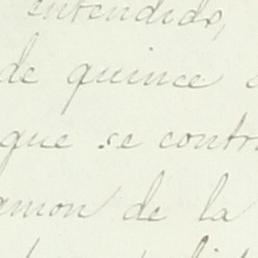 entendido,
de quince
que se contr
de la